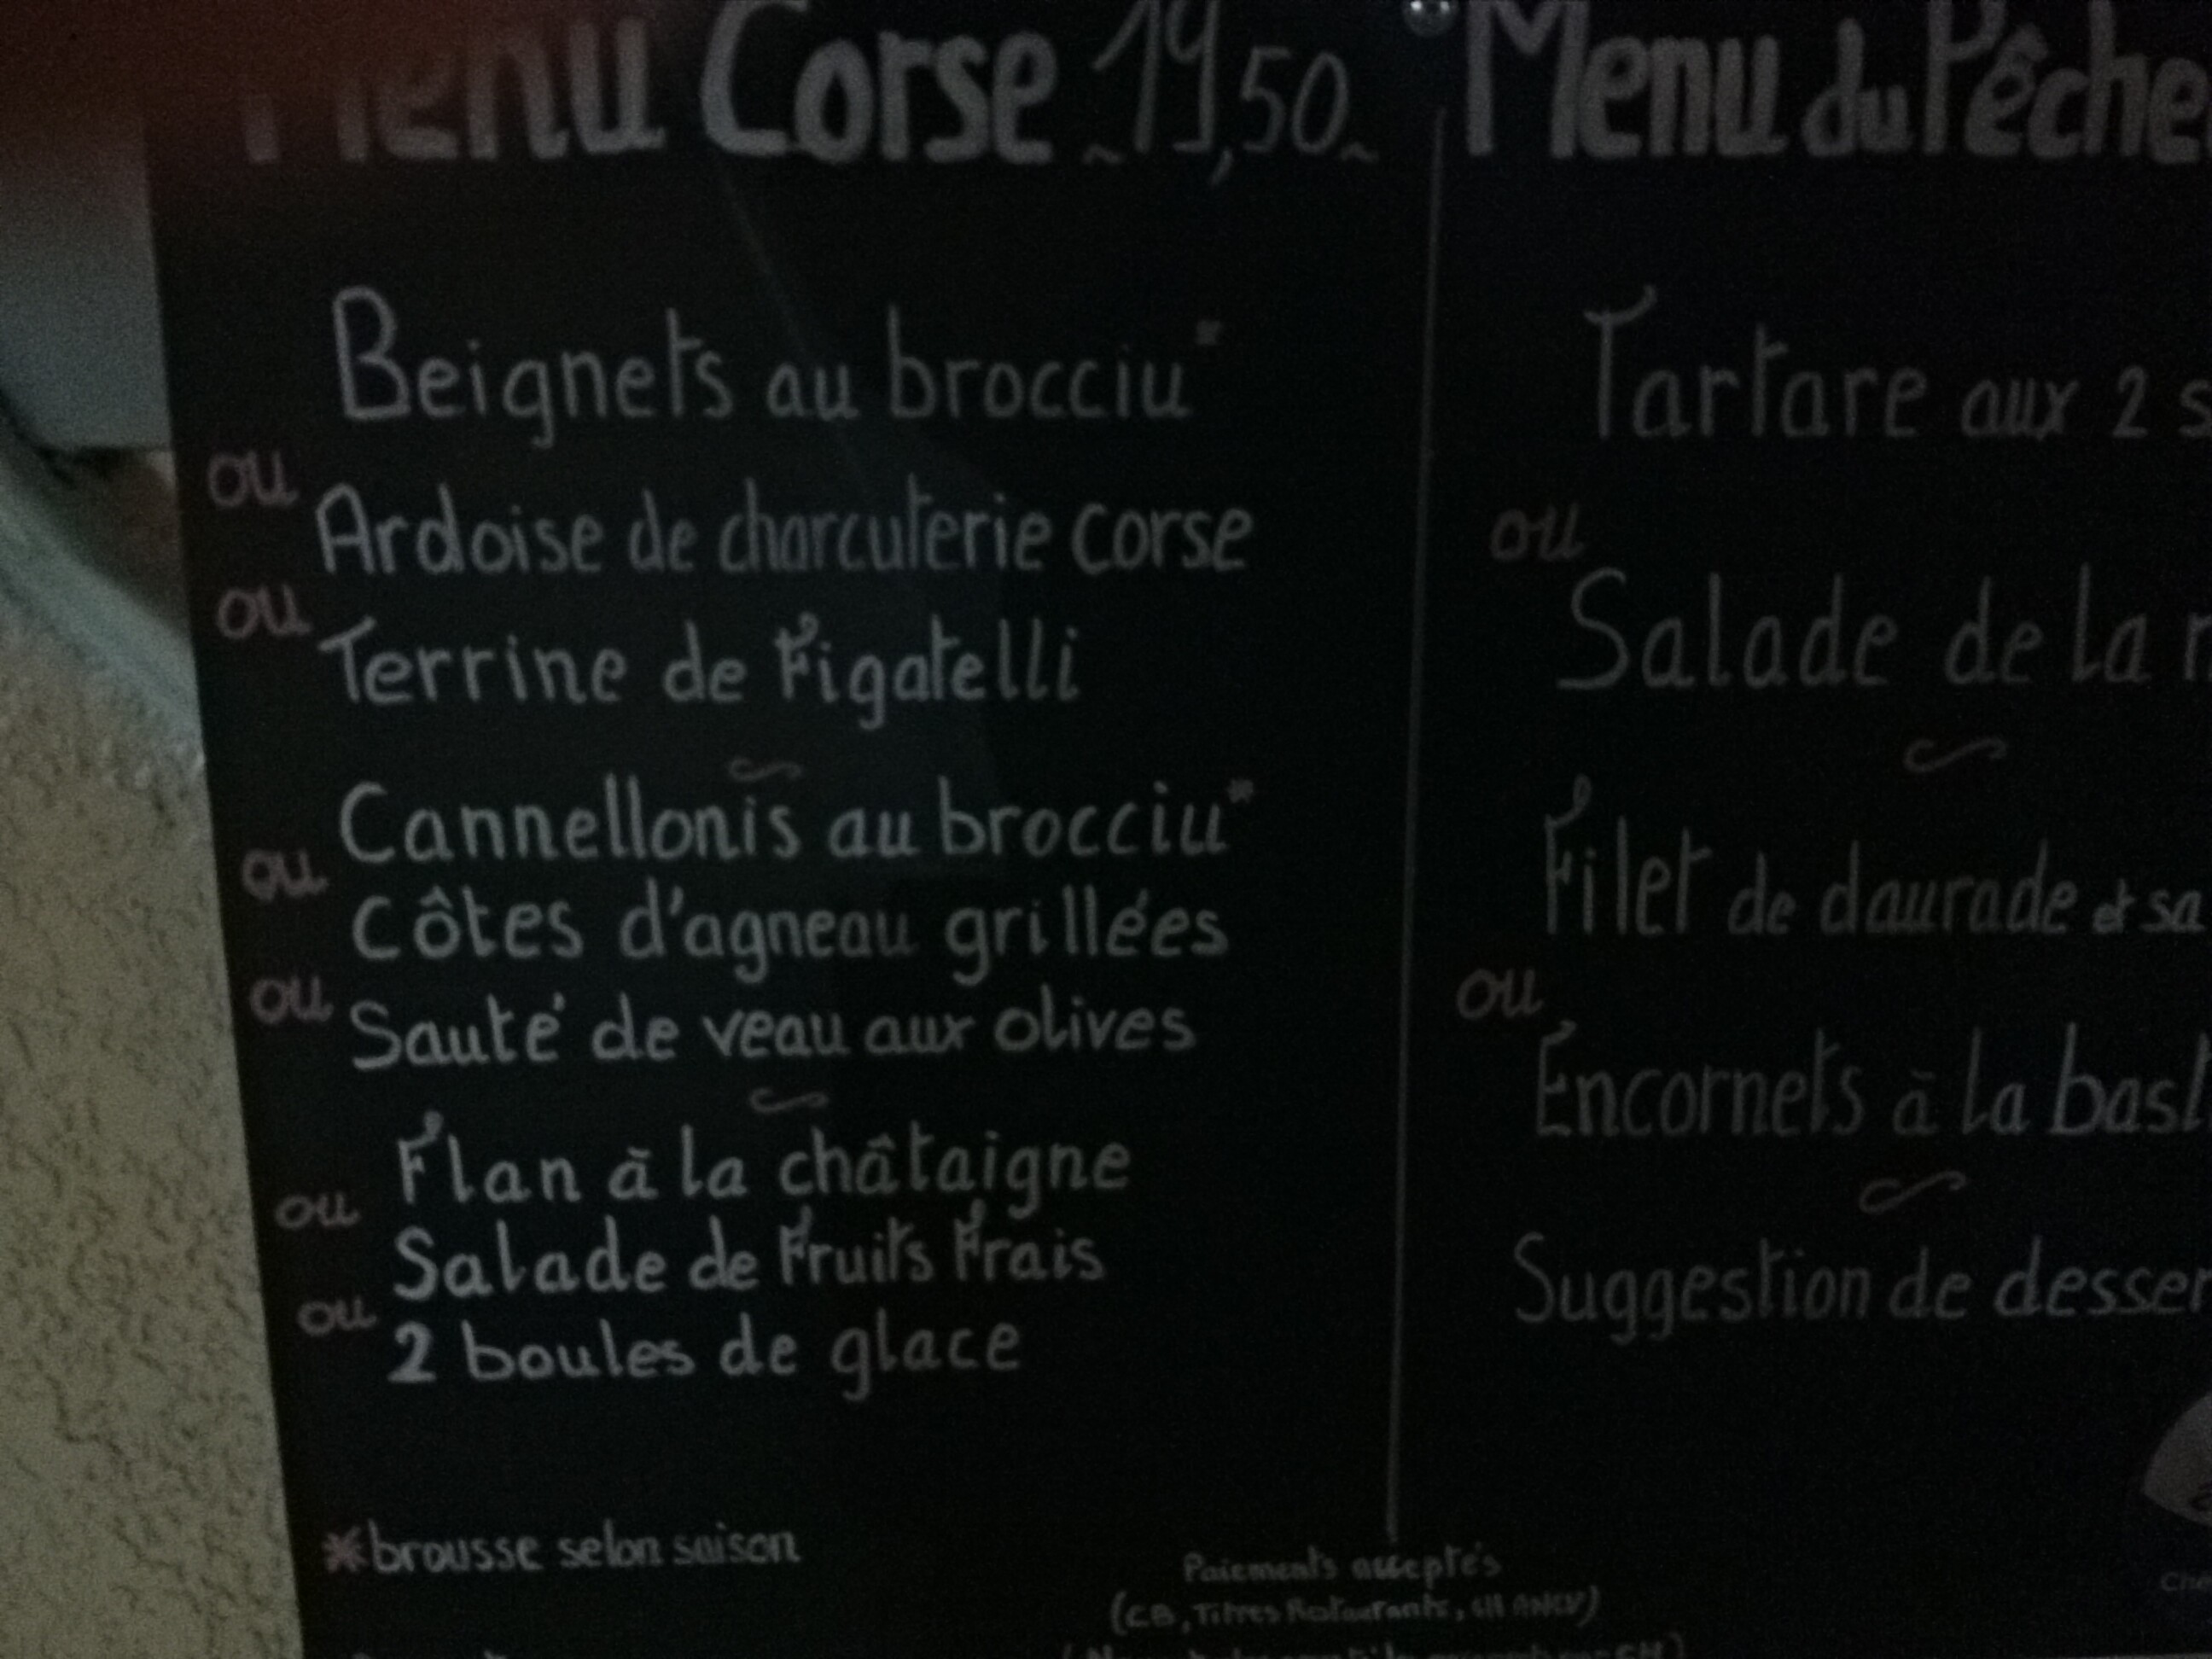 Menu Corse ~19,50~
Beignets au brocciu*
ou
Ardoise de charcuterie corse
ou
Terrine de Figatelli
Cannellonis au brocciu*
ou
Côtes d'agneau grillées
ou
Sauté de veau aux olives
Flan à la châtaigne
ou
Salade de Fruits Frais
ou
2 boules de glace
*brousse selon saison
Menu du Pêche
Tartare aux 2 s
ou
Salade de la
Filet de daurade et sa
ou
Encornets à la bast
Suggestion de desser
Paiements acceptés
(CB, Titres Restaurants, CH ANCV)